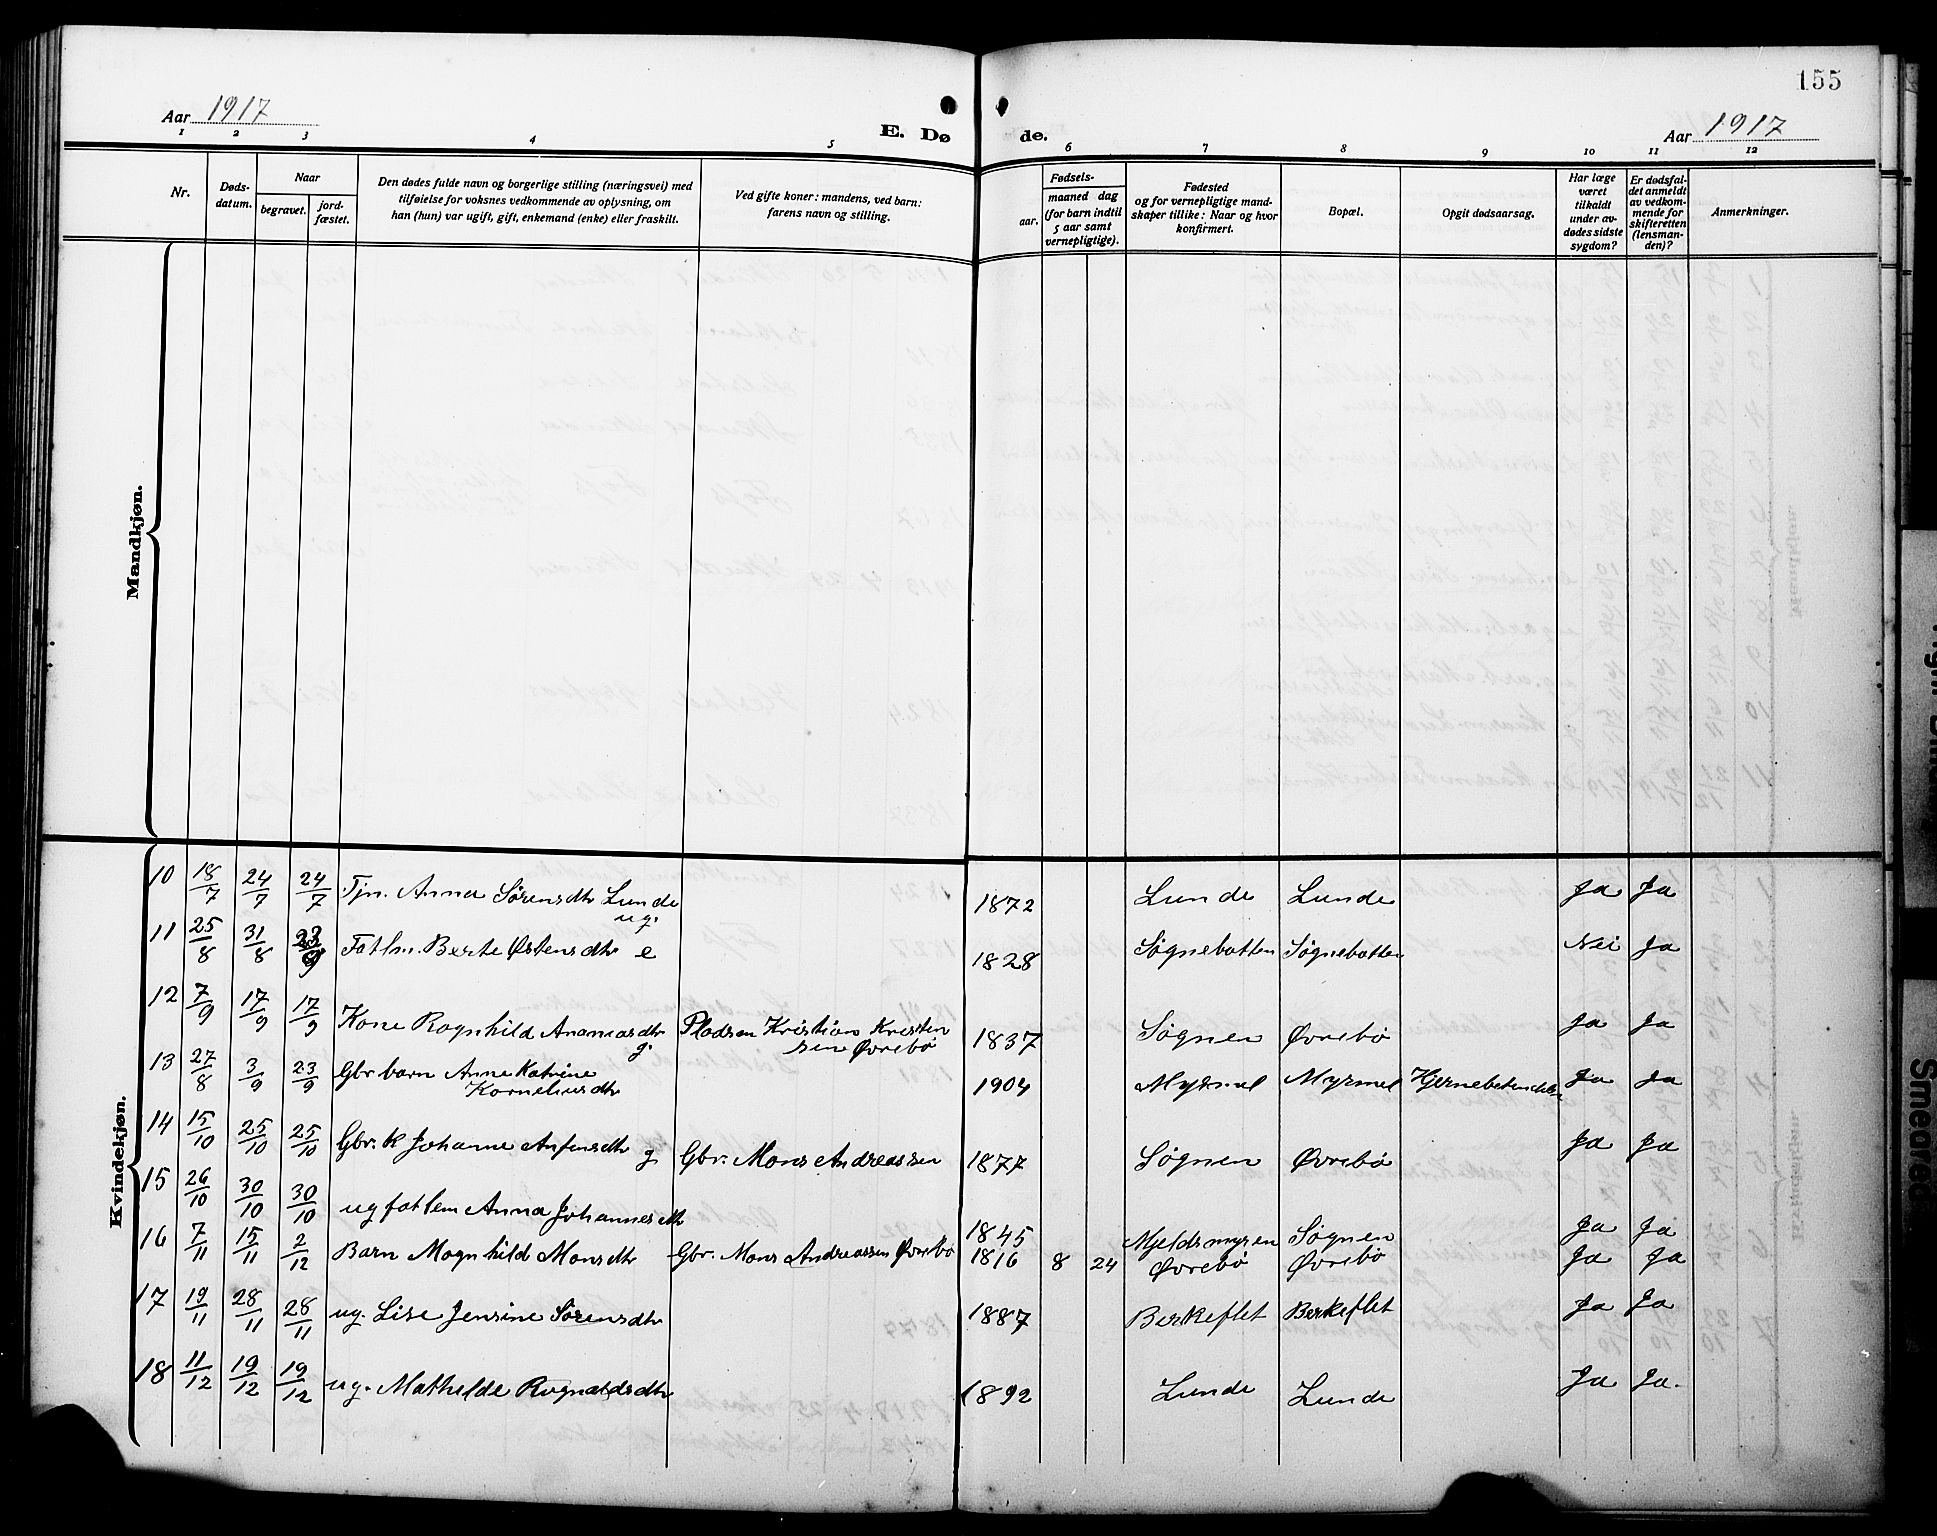 155
Aar 1917
E. Dø de.
Aar 1917
1 2 3 4 5 6 7 8 9 10 11 12
Nr.
Døds-
datum.
Naar
begravet.
jord-
fæstet.
Den dødes fulde navn og borgerlige stilling (næringsvei) med
tilføielse for voksnes vedkommende av oplysning, om
han (hun) var ugift, gift, enkemand (enke) eller fraskilt.
Ved gifte koner: mandens, ved barn:
farens navn og stilling.
Fødsels-
aar.
maaned dag
(for barn indtil
5 aar samt
vernepligtige).
Fødested
og for vernepligtige mand-
skaper tillike: Naar og hvor
konfirmert.
Bopæl.
Opgit dødsaarsag.
Har læge
været
tilkaldt
under av-
dødes sidste
sygdom?
Er dødsfal-
det anmeldt
av vedkom-
mende for
skifteretten
(lensman-
den)?
Anmerkninger.
Mandkjøn.
Kvindekjøn.
10 18/7 24/7 24/7 Tjn. Anna Sørensdtr Lunde 1872 Lunde Lunde Ja Ja
ug.
11 25/8 31/8 23/9 Fatlm. Berte Østensdtr e 1828 Søgnebotten Søgnebotten Nei Ja
12 7/9 17/9 17/9 Kone Ragnhild Ananiasdtr Pladsm Kristian Kristen 1837 Søgnen Øvrebø Ja Ja
g. sen Øvrebø
13 27/8 3/9 23/9 Gbr barn Anne Katrine 1904 Myrmel Myrmel Hjernebetendelse Ja Ja
Korneliusdtr
14 15/10 25/10 25/10 Gbr. k Johanne Anfinsdtr g. Gbr. Mons Andreassen 1877 Søgnen Øvrebø Ja Ja
15 26/10 30/10 30/10 ug fatlem Anna Johannesdtr 1845 Mjeldsmyren Søgnen Ja Ja
16 7/11 15/11 2/12 Barn Magnhild Monsdtr Gbr. Mons Andreassen Øvrebø 1816 8 24 Øvrebø Øvrebø Ja Ja
17 19/11 28/11 28/11 ug. Lise Jensine Sørensdtr 1887 Berkeflet Berkeflet Ja Ja
18 11/12 19/12 19/12 ug. Mathilde Rognaldsdtr 1892 Lunde Lunde Ja Ja.